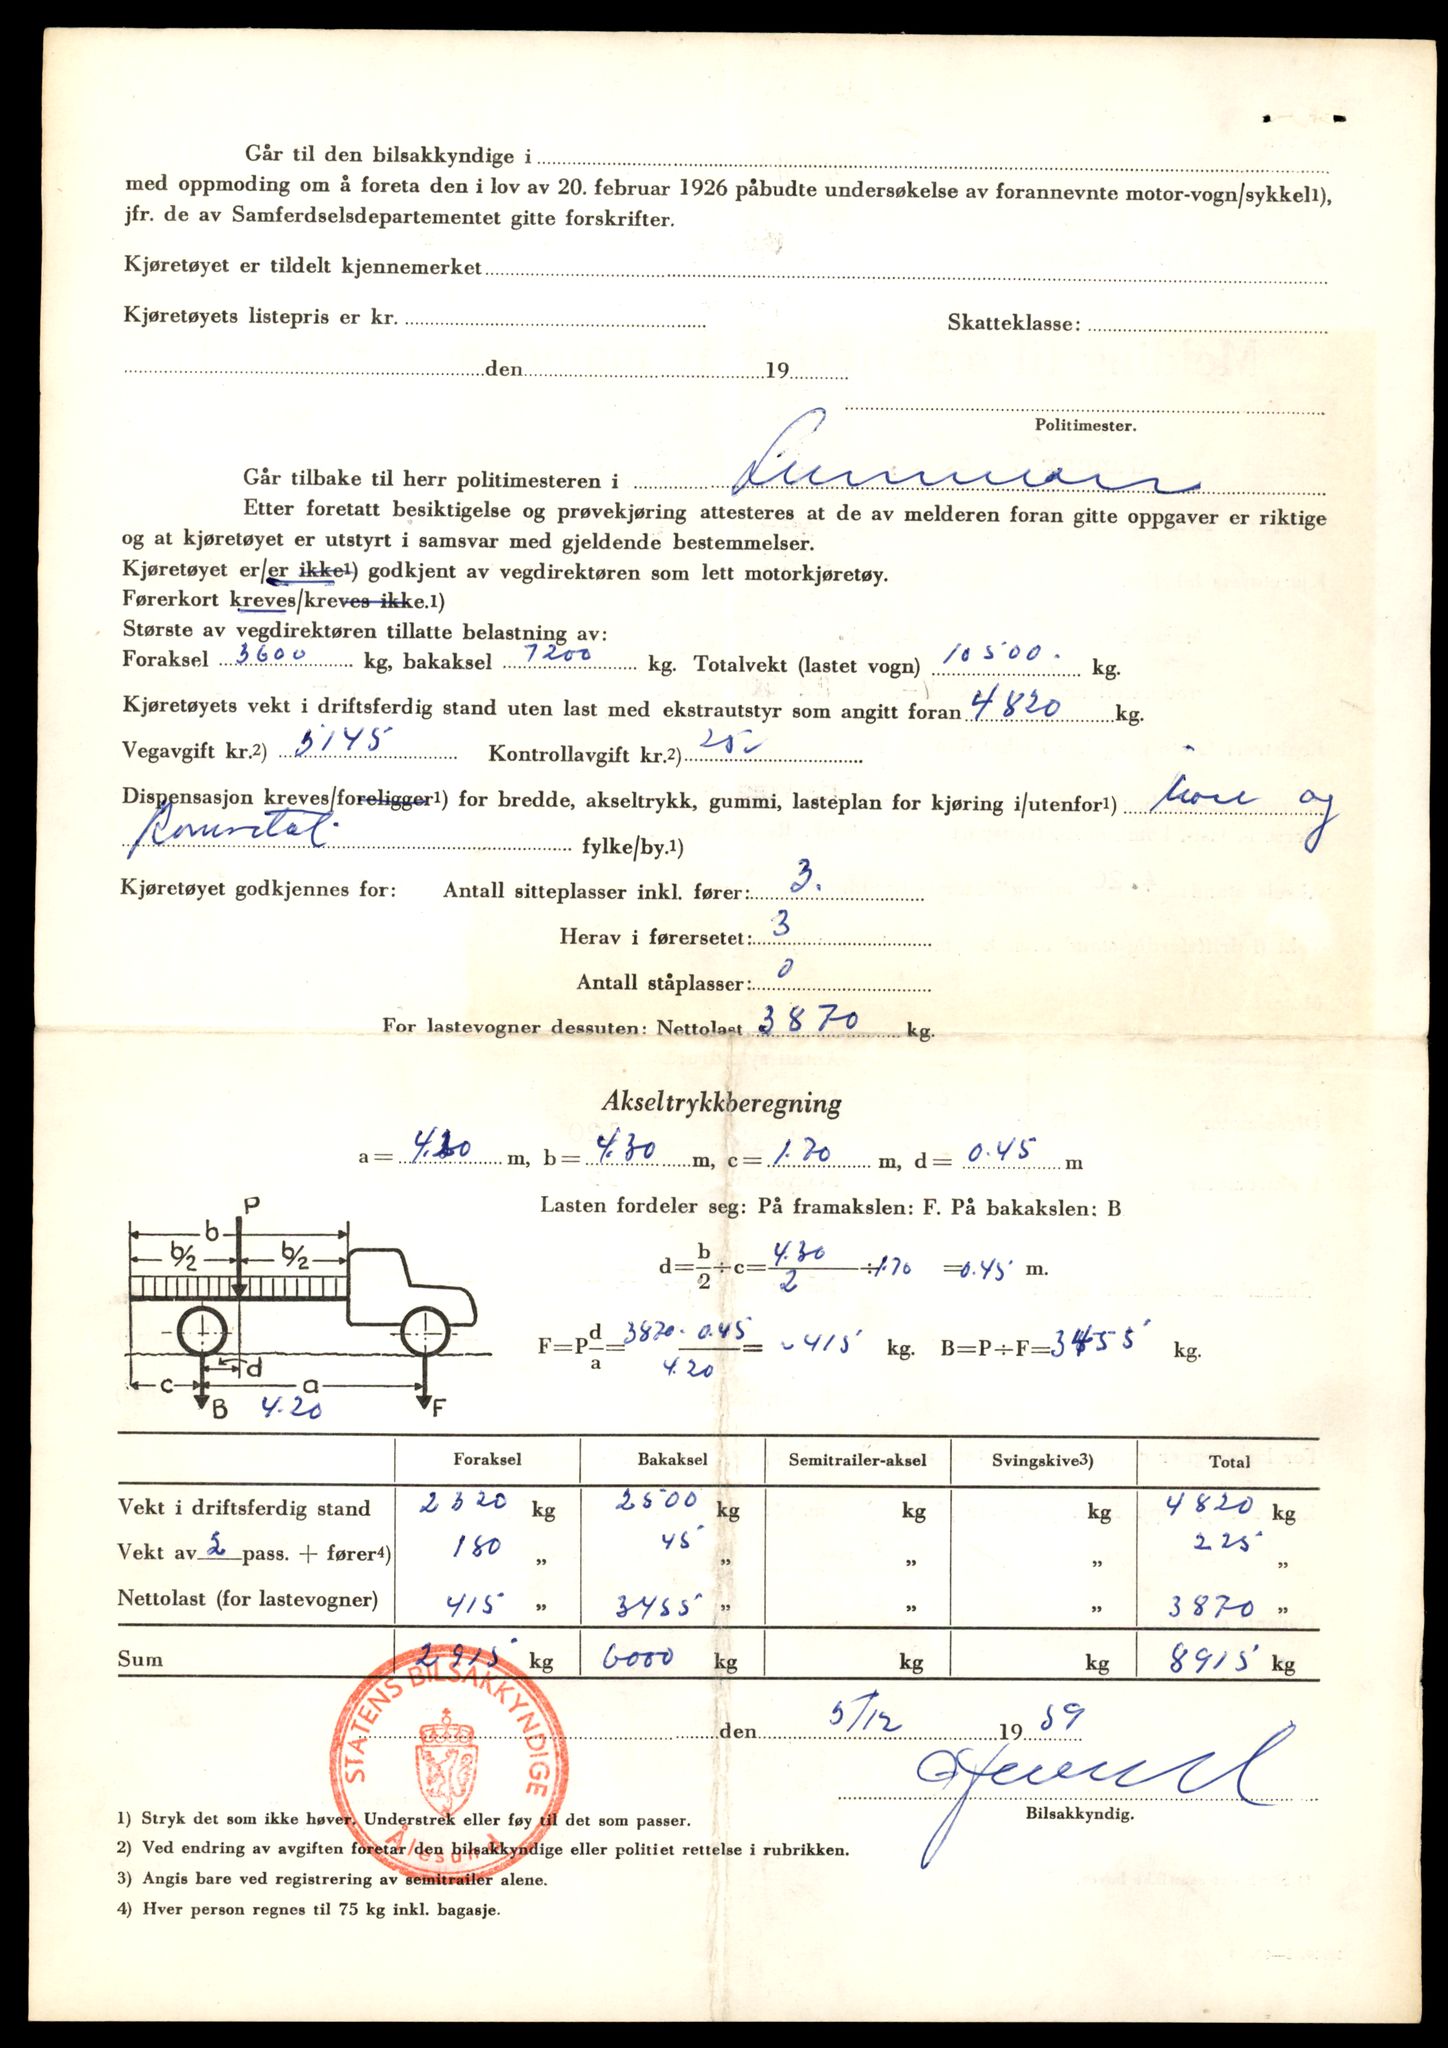 Går til den bilsakkyndige i
med oppmoding om å foreta den i lov av 20. februar 1926 påbudte undersøkelse av forannevnte motor-vogn/sykkel1),
jfr. de av Samferdselsdepartementet gitte forskrifter.
Kjøretøyet er tildelt kjennemerket
Kjøretøyets listepris er kr. Skatteklasse:
den 19
Politimester.
Går tilbake til herr politimesteren i
Etter foretatt besiktigelse og prøvekjøring attesteres at de av melderen foran gitte oppgaver er riktige
og at kjøretøyet er utstyrt i samsvar med gjeldende bestemmelser.
Kjøretøyet er/er ikke1) godkjent av vegdirektøren som lett motorkjøretøy.
Førerkort kreves/kreves ikke.1)
Største av vegdirektøren tillatte belastning av:
Foraksel 3600 kg, bakaksel 7200 kg. Totalvekt (lastet vogn) 10500. kg.
Kjøretøyets vekt i driftsferdig stand uten last med ekstrautstyr som angitt foran 4820 kg.
Vegavgift kr.2) 5145 Kontrollavgift kr.2) 25.-
Dispensasjon kreves/foreligger1) for bredde, akseltrykk, gummi, lasteplan for kjøring i/utenfor1) Møre og
Romsdal. fylke/by.1)
Kjøretøyet godkjennes for: Antall sitteplasser inkl. fører: 3.
Herav i førersetet: 3
Antall ståplasser: 0
For lastevogner dessuten: Nettolast 3870 kg.
Akseltrykkberegning
a = 4.20 m, b = 4.30 m, c = 1.70 m, d = 0.45 m
Lasten fordeler seg: På framakslen: F. På bakakslen: B
P
b
b/2 b/2
d = b/2 ÷ c = 4.30/2 ÷ 1.70 = 0.45 m.
F = P d/a = 3870 · 0.45 / 4.20 = ~ 415 kg. B = P ÷ F = 3455 kg.
d
c a
B 4.20 F
Foraksel Bakaksel Semitrailer-aksel Svingskive3) Total
Vekt i driftsferdig stand 2320 kg 2500 kg kg kg 4820 kg
Vekt av 2 pass. + fører4) 180 „ 45 „ „ „ 225 „
Nettolast (for lastevogner) 415 „ 3455 „ „ „ 3870 „
Sum 2915 kg 6000 kg kg kg 8915 kg
den 5/12 1959
Bilsakkyndig.
STATENS BILSAKKYNDIGE
Ålesund
1) Stryk det som ikke høver. Understrek eller føy til det som passer.
2) Ved endring av avgiften foretar den bilsakkyndige eller politiet rettelse i rubrikken.
3) Angis bare ved registrering av semitrailer alene.
4) Hver person regnes til 75 kg inkl. bagasje.